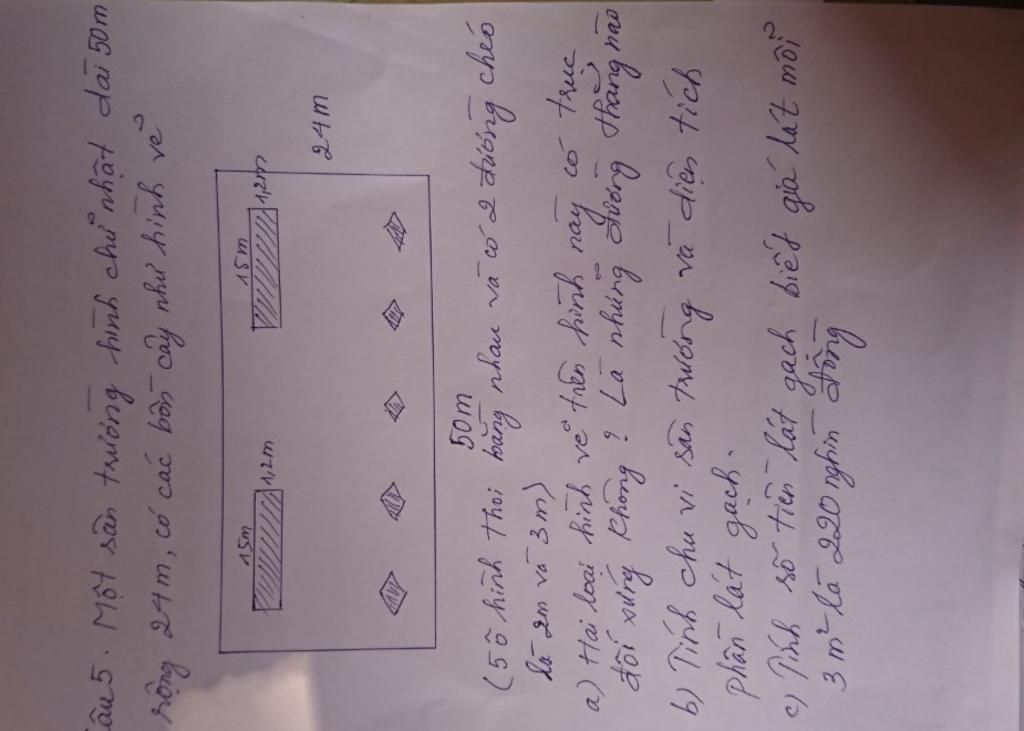 Câu 5. Một sân trường hình chữ nhật dài 50m
rộng 24m, có các bồn cây như hình vẽ
15m
1,2m
15m
1,2m
24m
50m
(5 ô hình thoi bằng nhau và có 2 đường chéo
là 2m và 3m)
a) Hai loại hình vẽ trên hình này có trục
đối xứng không? Là những đường thẳng nào
b) Tính chu vi sân trường và diện tích
phần lát gạch.
c) Tính số tiền lát gạch biết giá lát mỗi
3 m² là 220 nghìn đồng